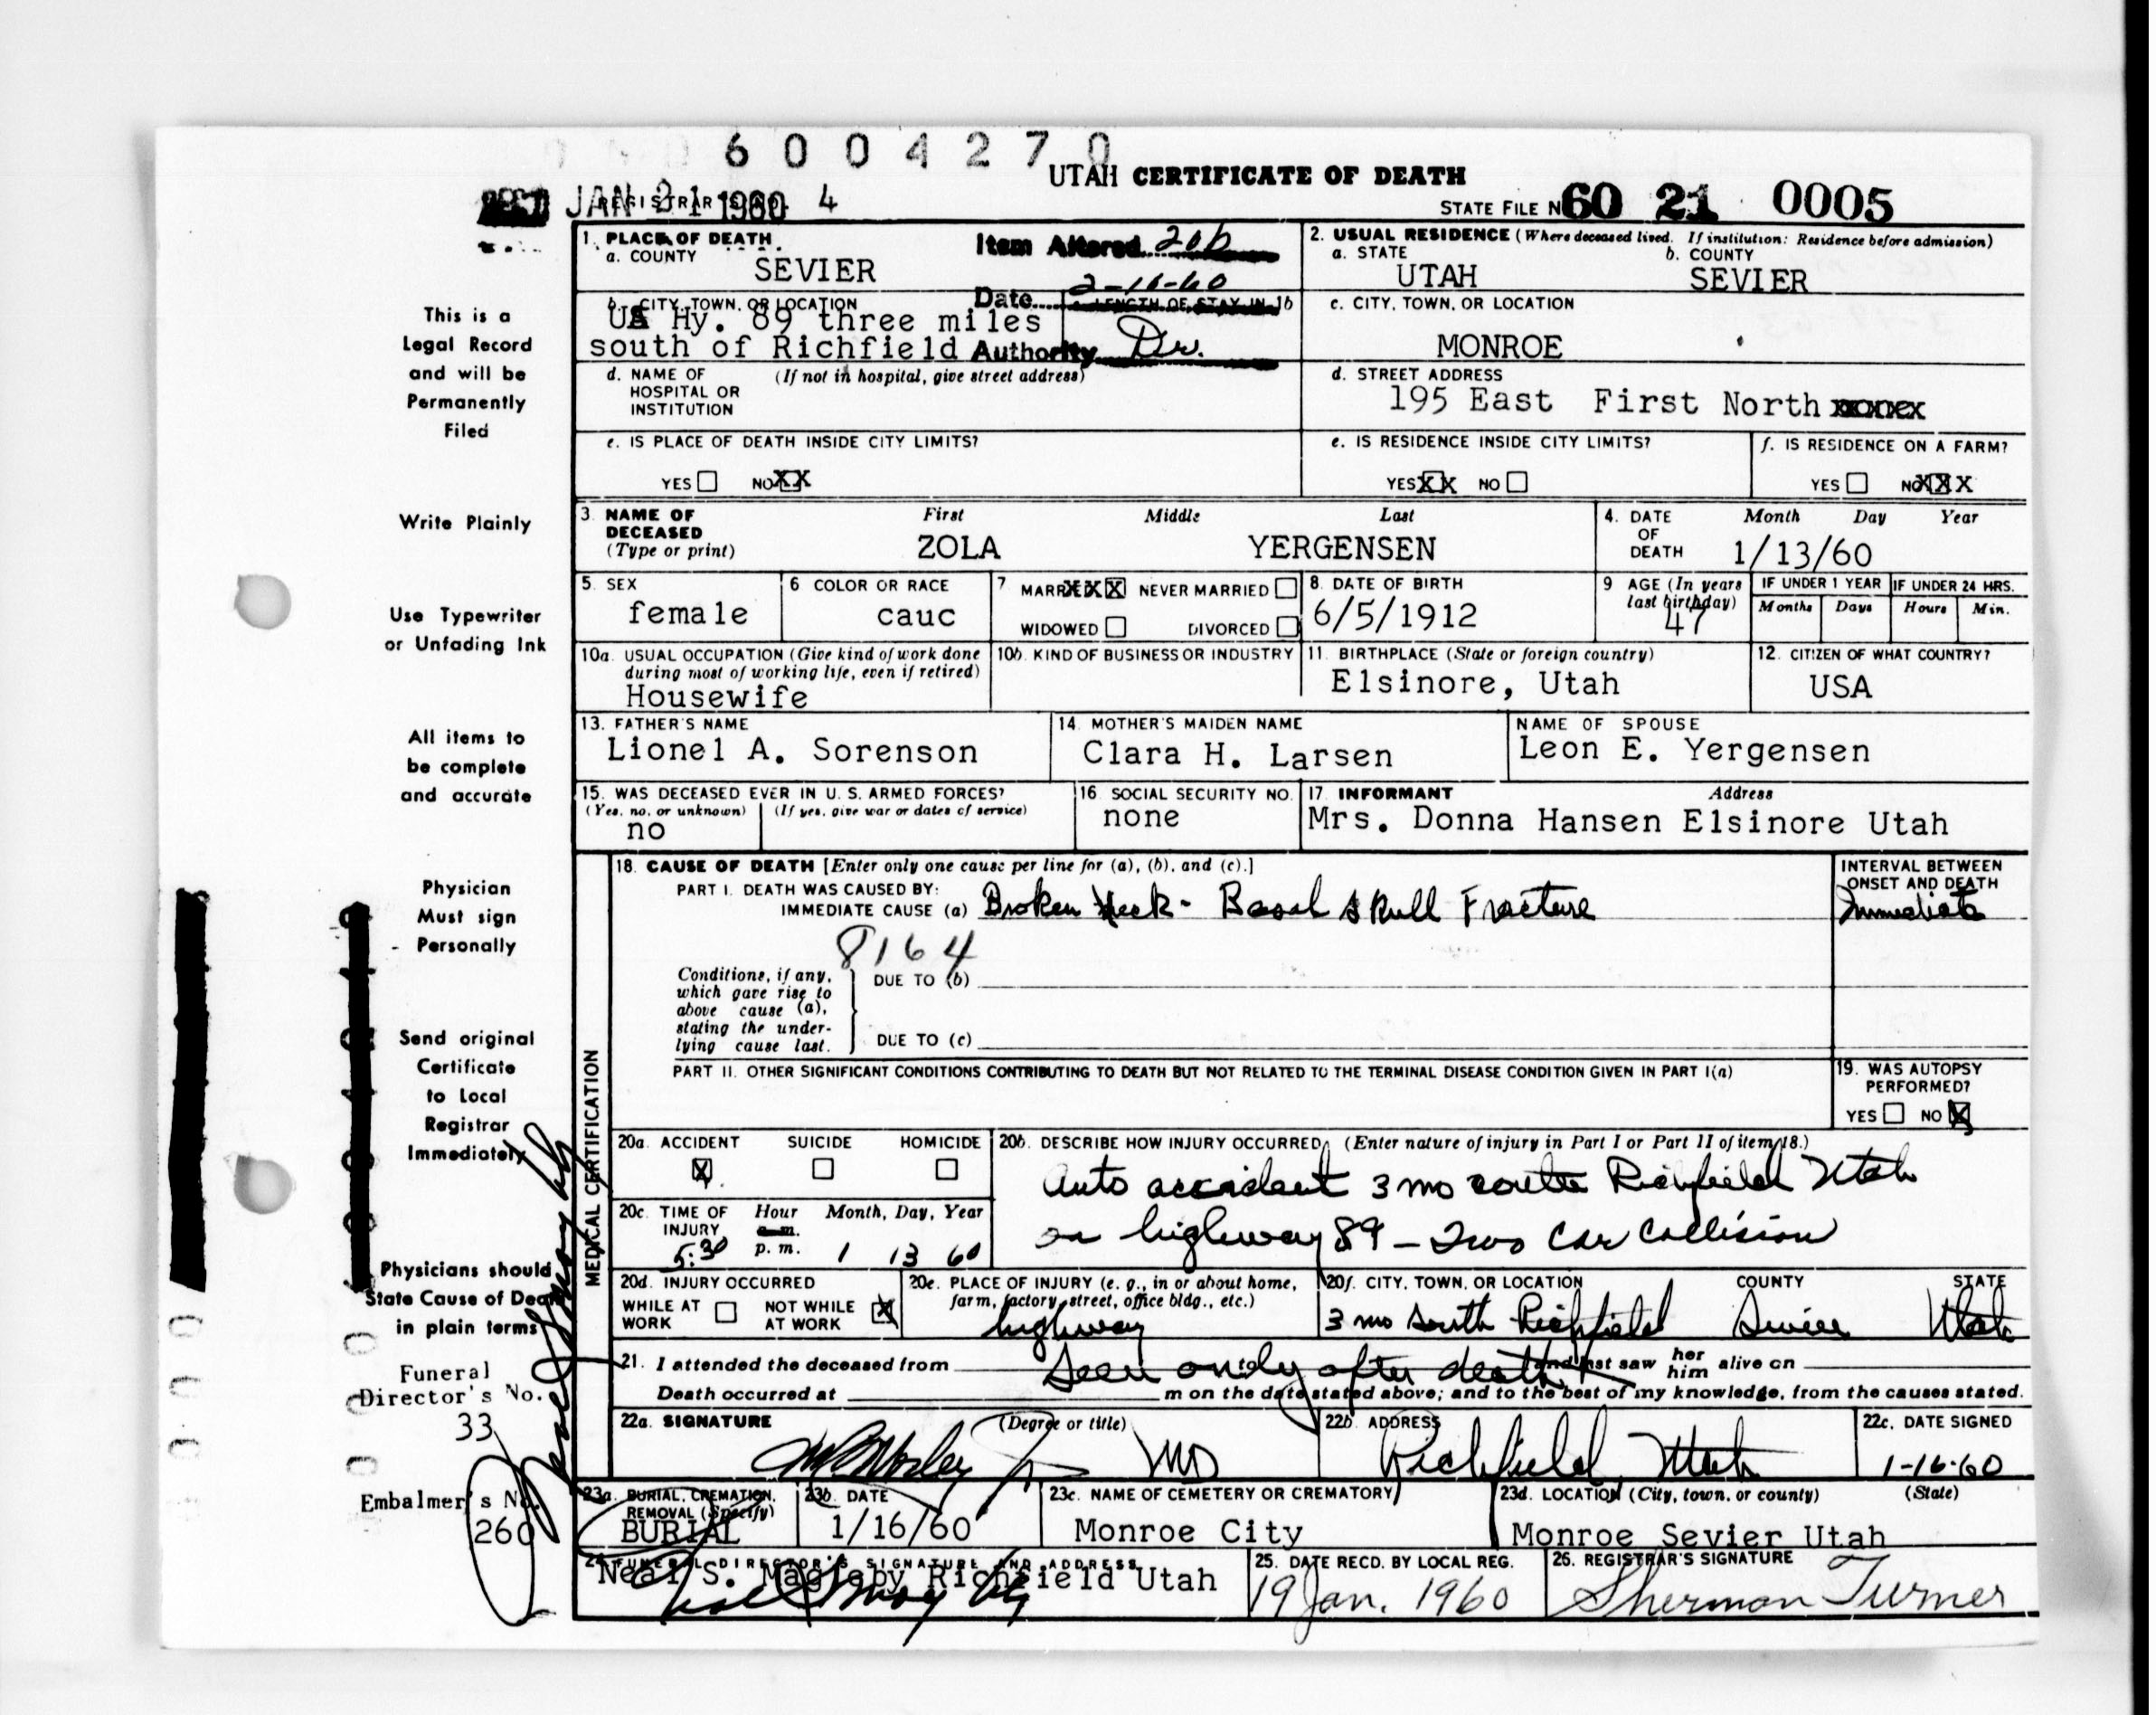 6 0 0 4 2 7 0
UTAH CERTIFICATE OF DEATH
JAN 21 1960 4
STATE FILE NO 60 21 0005
1. PLACE OF DEATH
a. COUNTY
SEVIER
Item Altered 20b
Date 2-16-60
Authority Dr.
b. CITY, TOWN, OR LOCATION
c. LENGTH OF STAY IN 1b
US Hy. 89 three miles
south of Richfield
d. NAME OF HOSPITAL OR INSTITUTION
(If not in hospital, give street address)
e. IS PLACE OF DEATH INSIDE CITY LIMITS?
YES NO XX
2. USUAL RESIDENCE (Where deceased lived. If institution: Residence before admission)
a. STATE
UTAH
b. COUNTY
SEVIER
c. CITY, TOWN, OR LOCATION
MONROE
d. STREET ADDRESS
195 East First North
e. IS RESIDENCE INSIDE CITY LIMITS?
YES XX NO
f. IS RESIDENCE ON A FARM?
YES NO XXX
3. NAME OF DECEASED
(Type or print)
First Middle Last
ZOLA YERGENSEN
4. DATE OF DEATH
Month Day Year
1/13/60
5. SEX
female
6 COLOR OR RACE
cauc
7 MARRIED XXX NEVER MARRIED
WIDOWED DIVORCED
8. DATE OF BIRTH
6/5/1912
9 AGE (In years last birthday)
47
IF UNDER 1 YEAR
Months Days
IF UNDER 24 HRS.
Hours Min.
10a. USUAL OCCUPATION (Give kind of work done during most of working life, even if retired)
Housewife
10b. KIND OF BUSINESS OR INDUSTRY
11. BIRTHPLACE (State or foreign country)
Elsinore, Utah
12. CITIZEN OF WHAT COUNTRY?
USA
13. FATHER'S NAME
Lionel A. Sorenson
14. MOTHER'S MAIDEN NAME
Clara H. Larsen
NAME OF SPOUSE
Leon E. Yergensen
15. WAS DECEASED EVER IN U. S. ARMED FORCES?
(Yes, no, or unknown) (If yes, give war or dates of service)
no
16. SOCIAL SECURITY NO.
none
17. INFORMANT Address
Mrs. Donna Hansen Elsinore Utah
MEDICAL CERTIFICATION
18. CAUSE OF DEATH [Enter only one cause per line for (a), (b), and (c).]
PART I. DEATH WAS CAUSED BY:
IMMEDIATE CAUSE (a) Broken Neck - Basal skull Fracture
8164
Conditions, if any, which gave rise to above cause (a), stating the underlying cause last.
DUE TO (b)
DUE TO (c)
INTERVAL BETWEEN ONSET AND DEATH
Immediate
PART II. OTHER SIGNIFICANT CONDITIONS CONTRIBUTING TO DEATH BUT NOT RELATED TO THE TERMINAL DISEASE CONDITION GIVEN IN PART I(a)
19. WAS AUTOPSY PERFORMED?
YES NO X
20a. ACCIDENT SUICIDE HOMICIDE
X
20b. DESCRIBE HOW INJURY OCCURRED. (Enter nature of injury in Part I or Part II of item 18.)
Auto accident 3 mo south Richfield Utah
on highway 89 - Two Car Collision
20c. TIME OF INJURY
Hour Month, Day, Year
a. m.
p. m.
5:30 1 13 60
20d. INJURY OCCURRED
WHILE AT WORK NOT WHILE AT WORK X
20e. PLACE OF INJURY (e. g., in or about home, farm, factory, street, office bldg., etc.)
highway
20f. CITY, TOWN, OR LOCATION COUNTY STATE
3 mo south Richfield Sevier Utah
21. I attended the deceased from Seen only after death and last saw her him alive on
Death occurred at m on the date stated above; and to the best of my knowledge, from the causes stated.
22a. SIGNATURE (Degree or title)
MD
22b. ADDRESS
Richfield, Utah
22c. DATE SIGNED
1-16-60
23a. BURIAL, CREMATION, REMOVAL (Specify)
BURIAL
23b. DATE
1/16/60
23c. NAME OF CEMETERY OR CREMATORY
Monroe City
23d. LOCATION (City, town, or county) (State)
Monroe Sevier Utah
24. FUNERAL DIRECTOR'S SIGNATURE AND ADDRESS
Neal S. Magleby Richfield Utah
25. DATE RECD. BY LOCAL REG.
19 Jan. 1960
26. REGISTRAR'S SIGNATURE
Sherman Turner
This is a
Legal Record
and will be
Permanently
Filed
Write Plainly
Use Typewriter
or Unfading Ink
All items to
be complete
and accurate
Physician
Must sign
Personally
Send original
Certificate
to Local
Registrar
Immediately
Physicians should
State Cause of Death
in plain terms
Funeral
Director's No.
33
Embalmer's No.
260